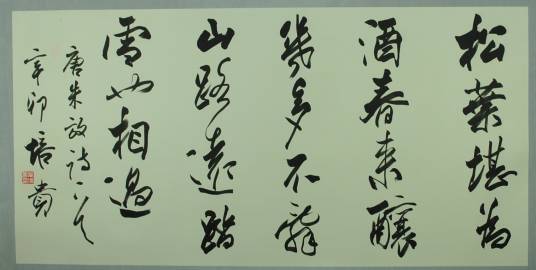 松葉堪為
酒春來釀
幾多不辭
山路遠踏
雪也相過
唐朱放詩一首
辛卯培貴